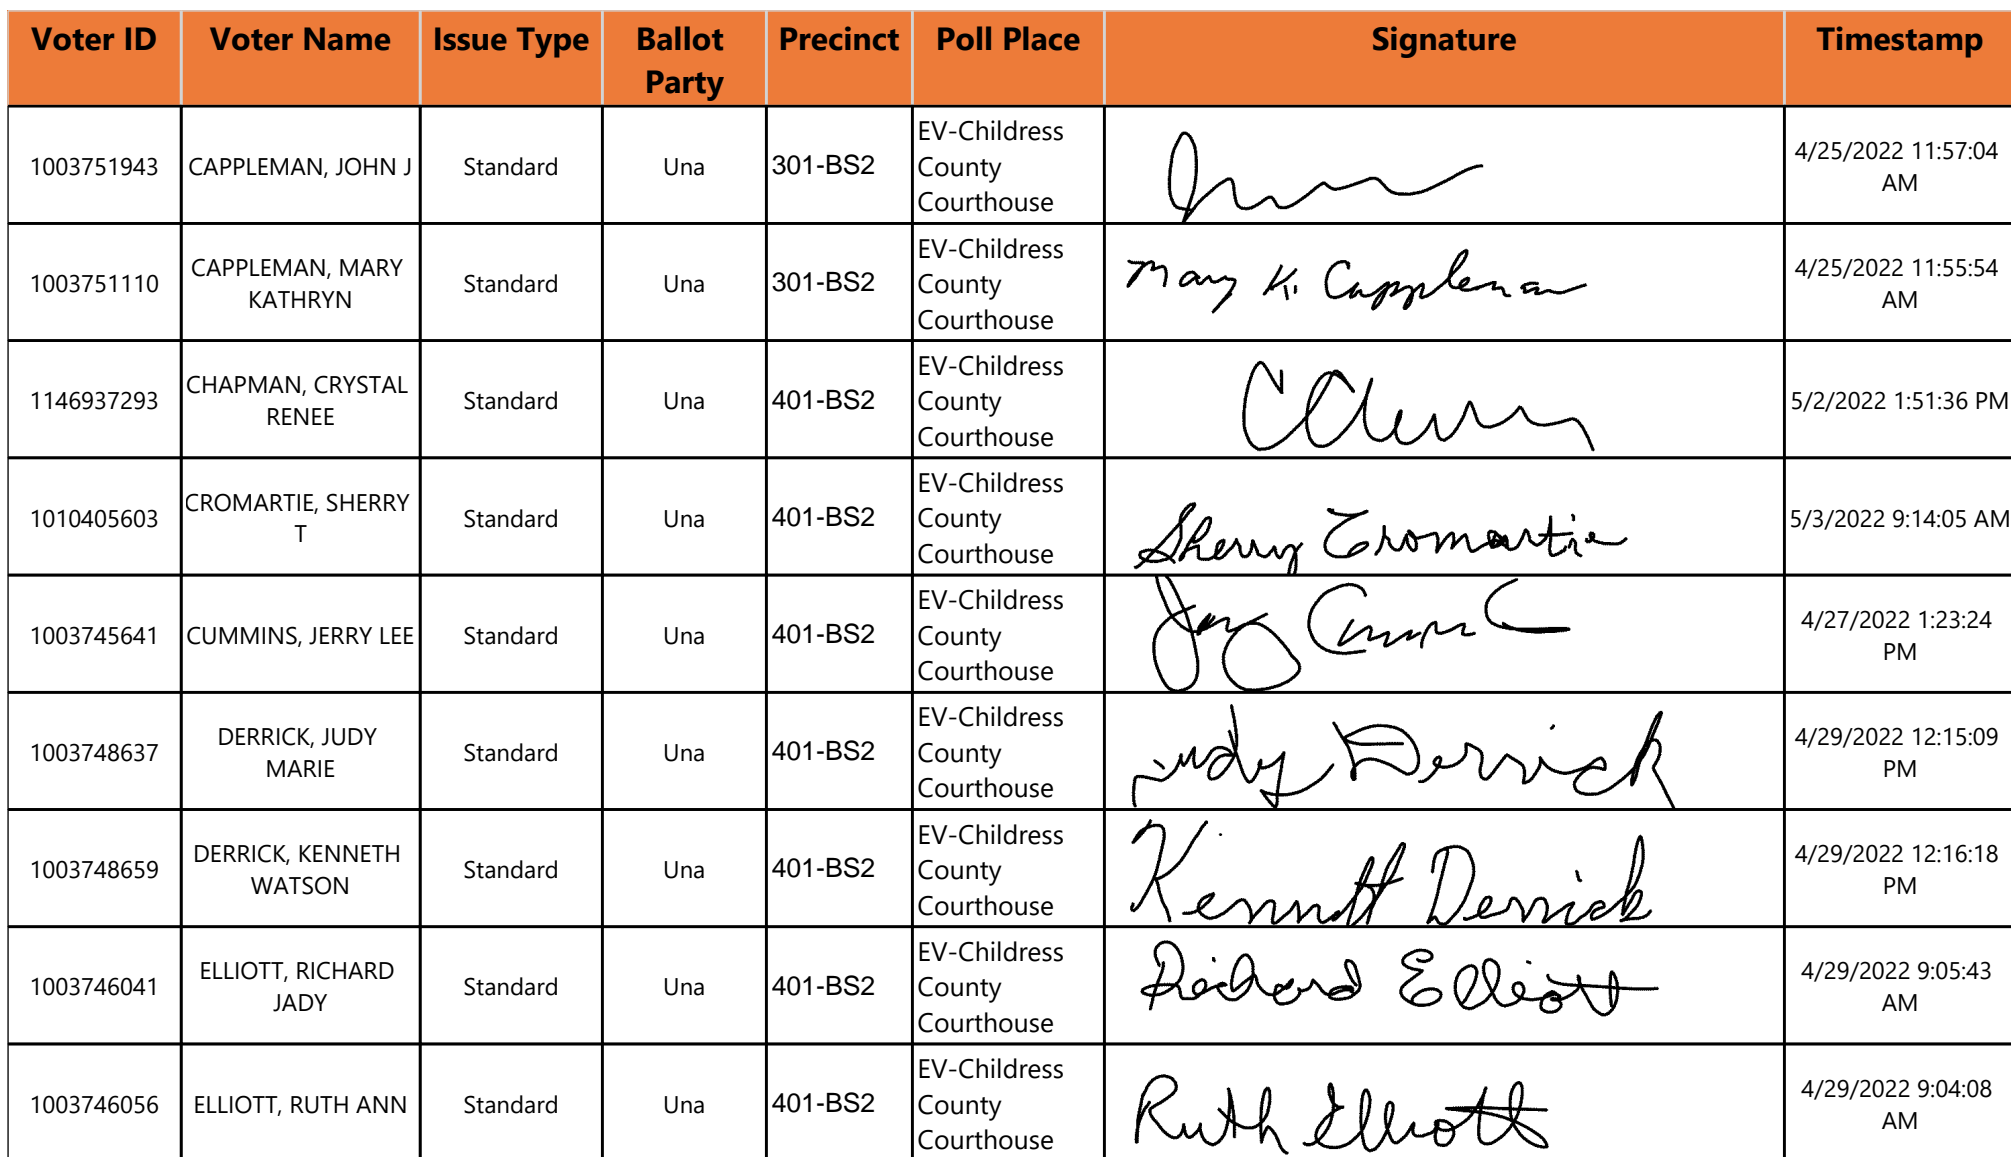 Voter ID Voter Name Issue Type Ballot Party Precinct Poll Place Signature Timestamp
1003751943 CAPPLEMAN, JOHN J Standard Una 301-BS2 EV-Childress County Courthouse 4/25/2022 11:57:04 AM
1003751110 CAPPLEMAN, MARY KATHRYN Standard Una 301-BS2 EV-Childress County Courthouse Mary K. Cappleman 4/25/2022 11:55:54 AM
1146937293 CHAPMAN, CRYSTAL RENEE Standard Una 401-BS2 EV-Childress County Courthouse 5/2/2022 1:51:36 PM
1010405603 CROMARTIE, SHERRY T Standard Una 401-BS2 EV-Childress County Courthouse Sherry Cromartie 5/3/2022 9:14:05 AM
1003745641 CUMMINS, JERRY LEE Standard Una 401-BS2 EV-Childress County Courthouse 4/27/2022 1:23:24 PM
1003748637 DERRICK, JUDY MARIE Standard Una 401-BS2 EV-Childress County Courthouse Judy Derrick 4/29/2022 12:15:09 PM
1003748659 DERRICK, KENNETH WATSON Standard Una 401-BS2 EV-Childress County Courthouse Kenneth Derrick 4/29/2022 12:16:18 PM
1003746041 ELLIOTT, RICHARD JADY Standard Una 401-BS2 EV-Childress County Courthouse Richard Elliott 4/29/2022 9:05:43 AM
1003746056 ELLIOTT, RUTH ANN Standard Una 401-BS2 EV-Childress County Courthouse Ruth Elliott 4/29/2022 9:04:08 AM